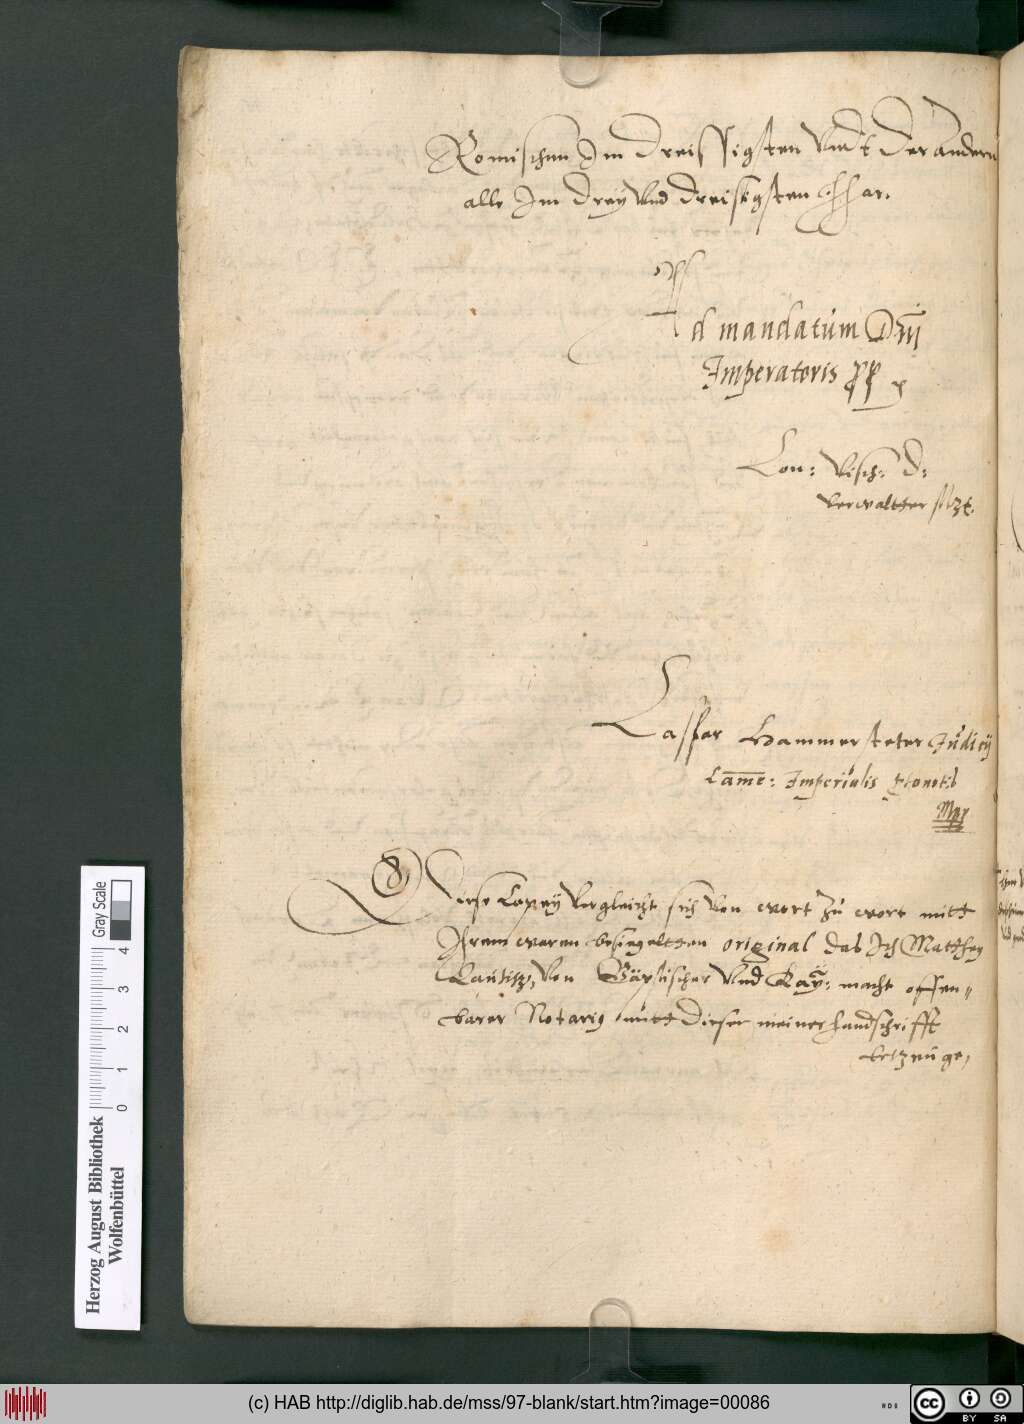 Romischen Im dreissigsten Vndt der andern
alle Im drey vnd dreisigsten Jhar.
Ad mandatum Dnj
Imperatoris pp
Con: Visch: D:
Verwaltter sszt.
Caspar Hammerstetter Judicij
Came: Imperialis ptonot:
Mpr
Diese Copey Vergleicht sich Von wort zu wort mitt
Ihrem waren besiegeltten original das Ich Matthey
Lausitz, Von Bäpstischer Vnd Kay: macht offen-
barer Notarius mitt dieser meiner handschrifft
betzeuge,
Herzog August Bibliothek
Wolfenbüttel
Gray Scale
0 1 2 3 4
(c) HAB http://diglib.hab.de/mss/97-blank/start.htm?image=00086
cc BY SA